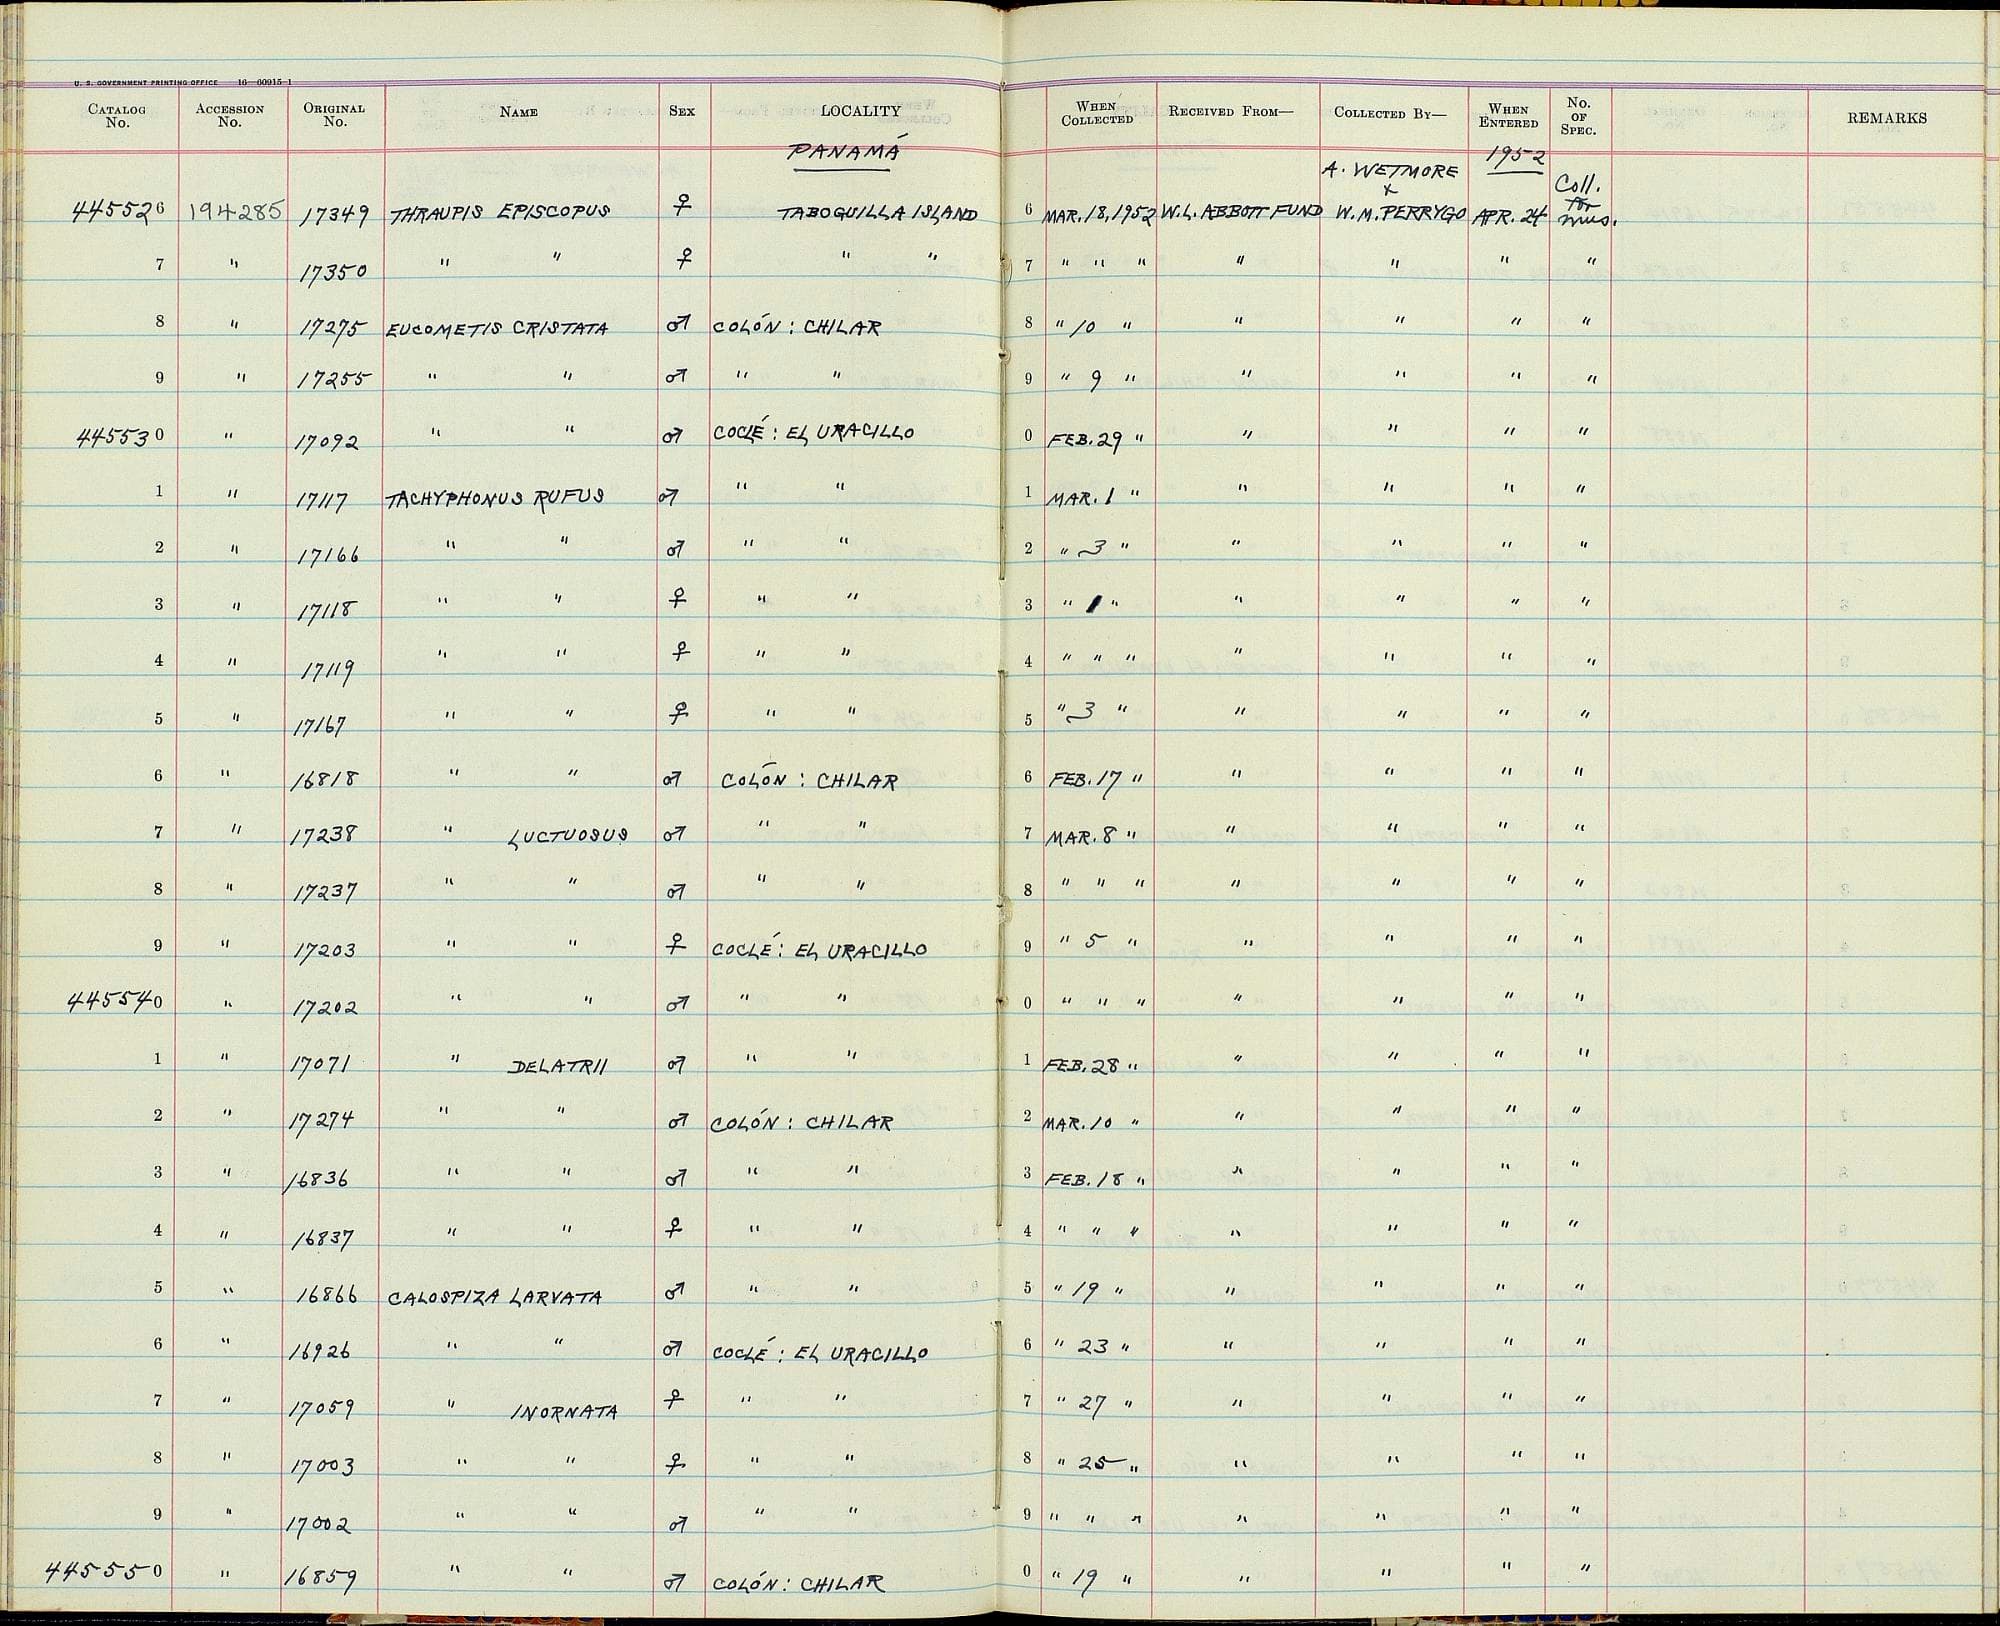 U. S. GOVERNMENT PRINTING OFFICE 16—60915-1
CATALOG No. ACCESSION No. ORIGINAL No. NAME SEX LOCALITY WHEN COLLECTED RECEIVED FROM— COLLECTED BY— WHEN ENTERED No. OF SPEC. REMARKS
PANAMÁ A. WETMORE 1952
445526 194285 17349 THRAUPIS EPISCOPUS ♀ TABOGUILLA ISLAND 6 MAR. 18, 1952 W. L. ABBOTT FUND & W. M. PERRYGO APR. 24 Coll. for mus.
7 " 17350 " " ♀ " " 7 " " " " " " "
8 " 17275 EUCOMETIS CRISTATA ♂ COLÓN : CHILAR 8 " 10 " " " " "
9 " 17255 " " ♂ " " 9 " 9 " " " " "
445530 " 17092 " " ♂ COCLÉ : EL URACILLO 0 FEB. 29 " " " " "
1 " 17117 TACHYPHONUS RUFUS ♂ " " 1 MAR. 1 " " " " "
2 " 17166 " " ♂ " " 2 " 3 " " " " "
3 " 17118 " " ♀ " " 3 " 1 " " " " "
4 " 17119 " " ♀ " " 4 " " " " " " "
5 " 17167 " " ♀ " " 5 " 3 " " " " "
6 " 16818 " " ♂ COLÓN : CHILAR 6 FEB. 17 " " " " "
7 " 17238 " LUCTUOSUS ♂ " " 7 MAR. 8 " " " " "
8 " 17237 " " ♂ " " 8 " " " " " " "
9 " 17203 " " ♀ COCLÉ : EL URACILLO 9 " 5 " " " " "
445540 " 17202 " " ♂ " " 0 " " " " " " "
1 " 17071 " DELATRII ♂ " " 1 FEB. 28 " " " " "
2 " 17274 " " ♂ COLÓN : CHILAR 2 MAR. 10 " " " " "
3 " 16836 " " ♂ " " 3 FEB. 18 " " " " "
4 " 16837 " " ♀ " " 4 " " " " " " "
5 " 16866 CALOSPIZA LARVATA ♂ " " 5 " 19 " " " " "
6 " 16926 " " ♂ COCLÉ : EL URACILLO 6 " 23 " " " " "
7 " 17059 " INORNATA ♀ " " 7 " 27 " " " " "
8 " 17003 " " ♀ " " 8 " 25 " " " " "
9 " 17002 " " ♂ " " 9 " " " " " " "
445550 " 16859 " " ♂ COLÓN : CHILAR 0 " 19 " " " " "